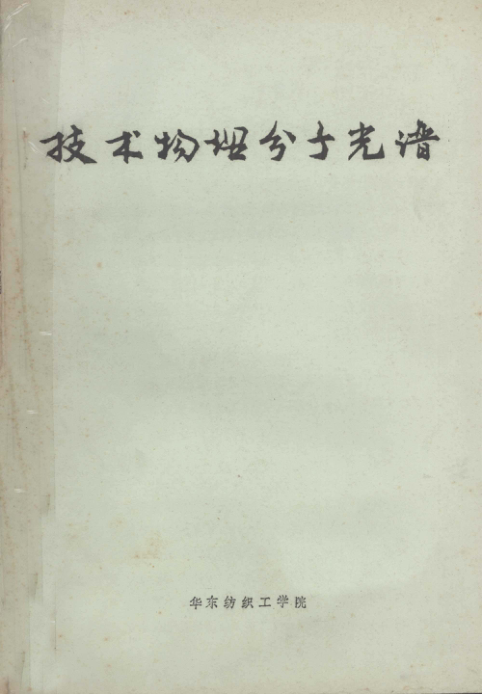 技术物理分子光谱
华东纺织工学院